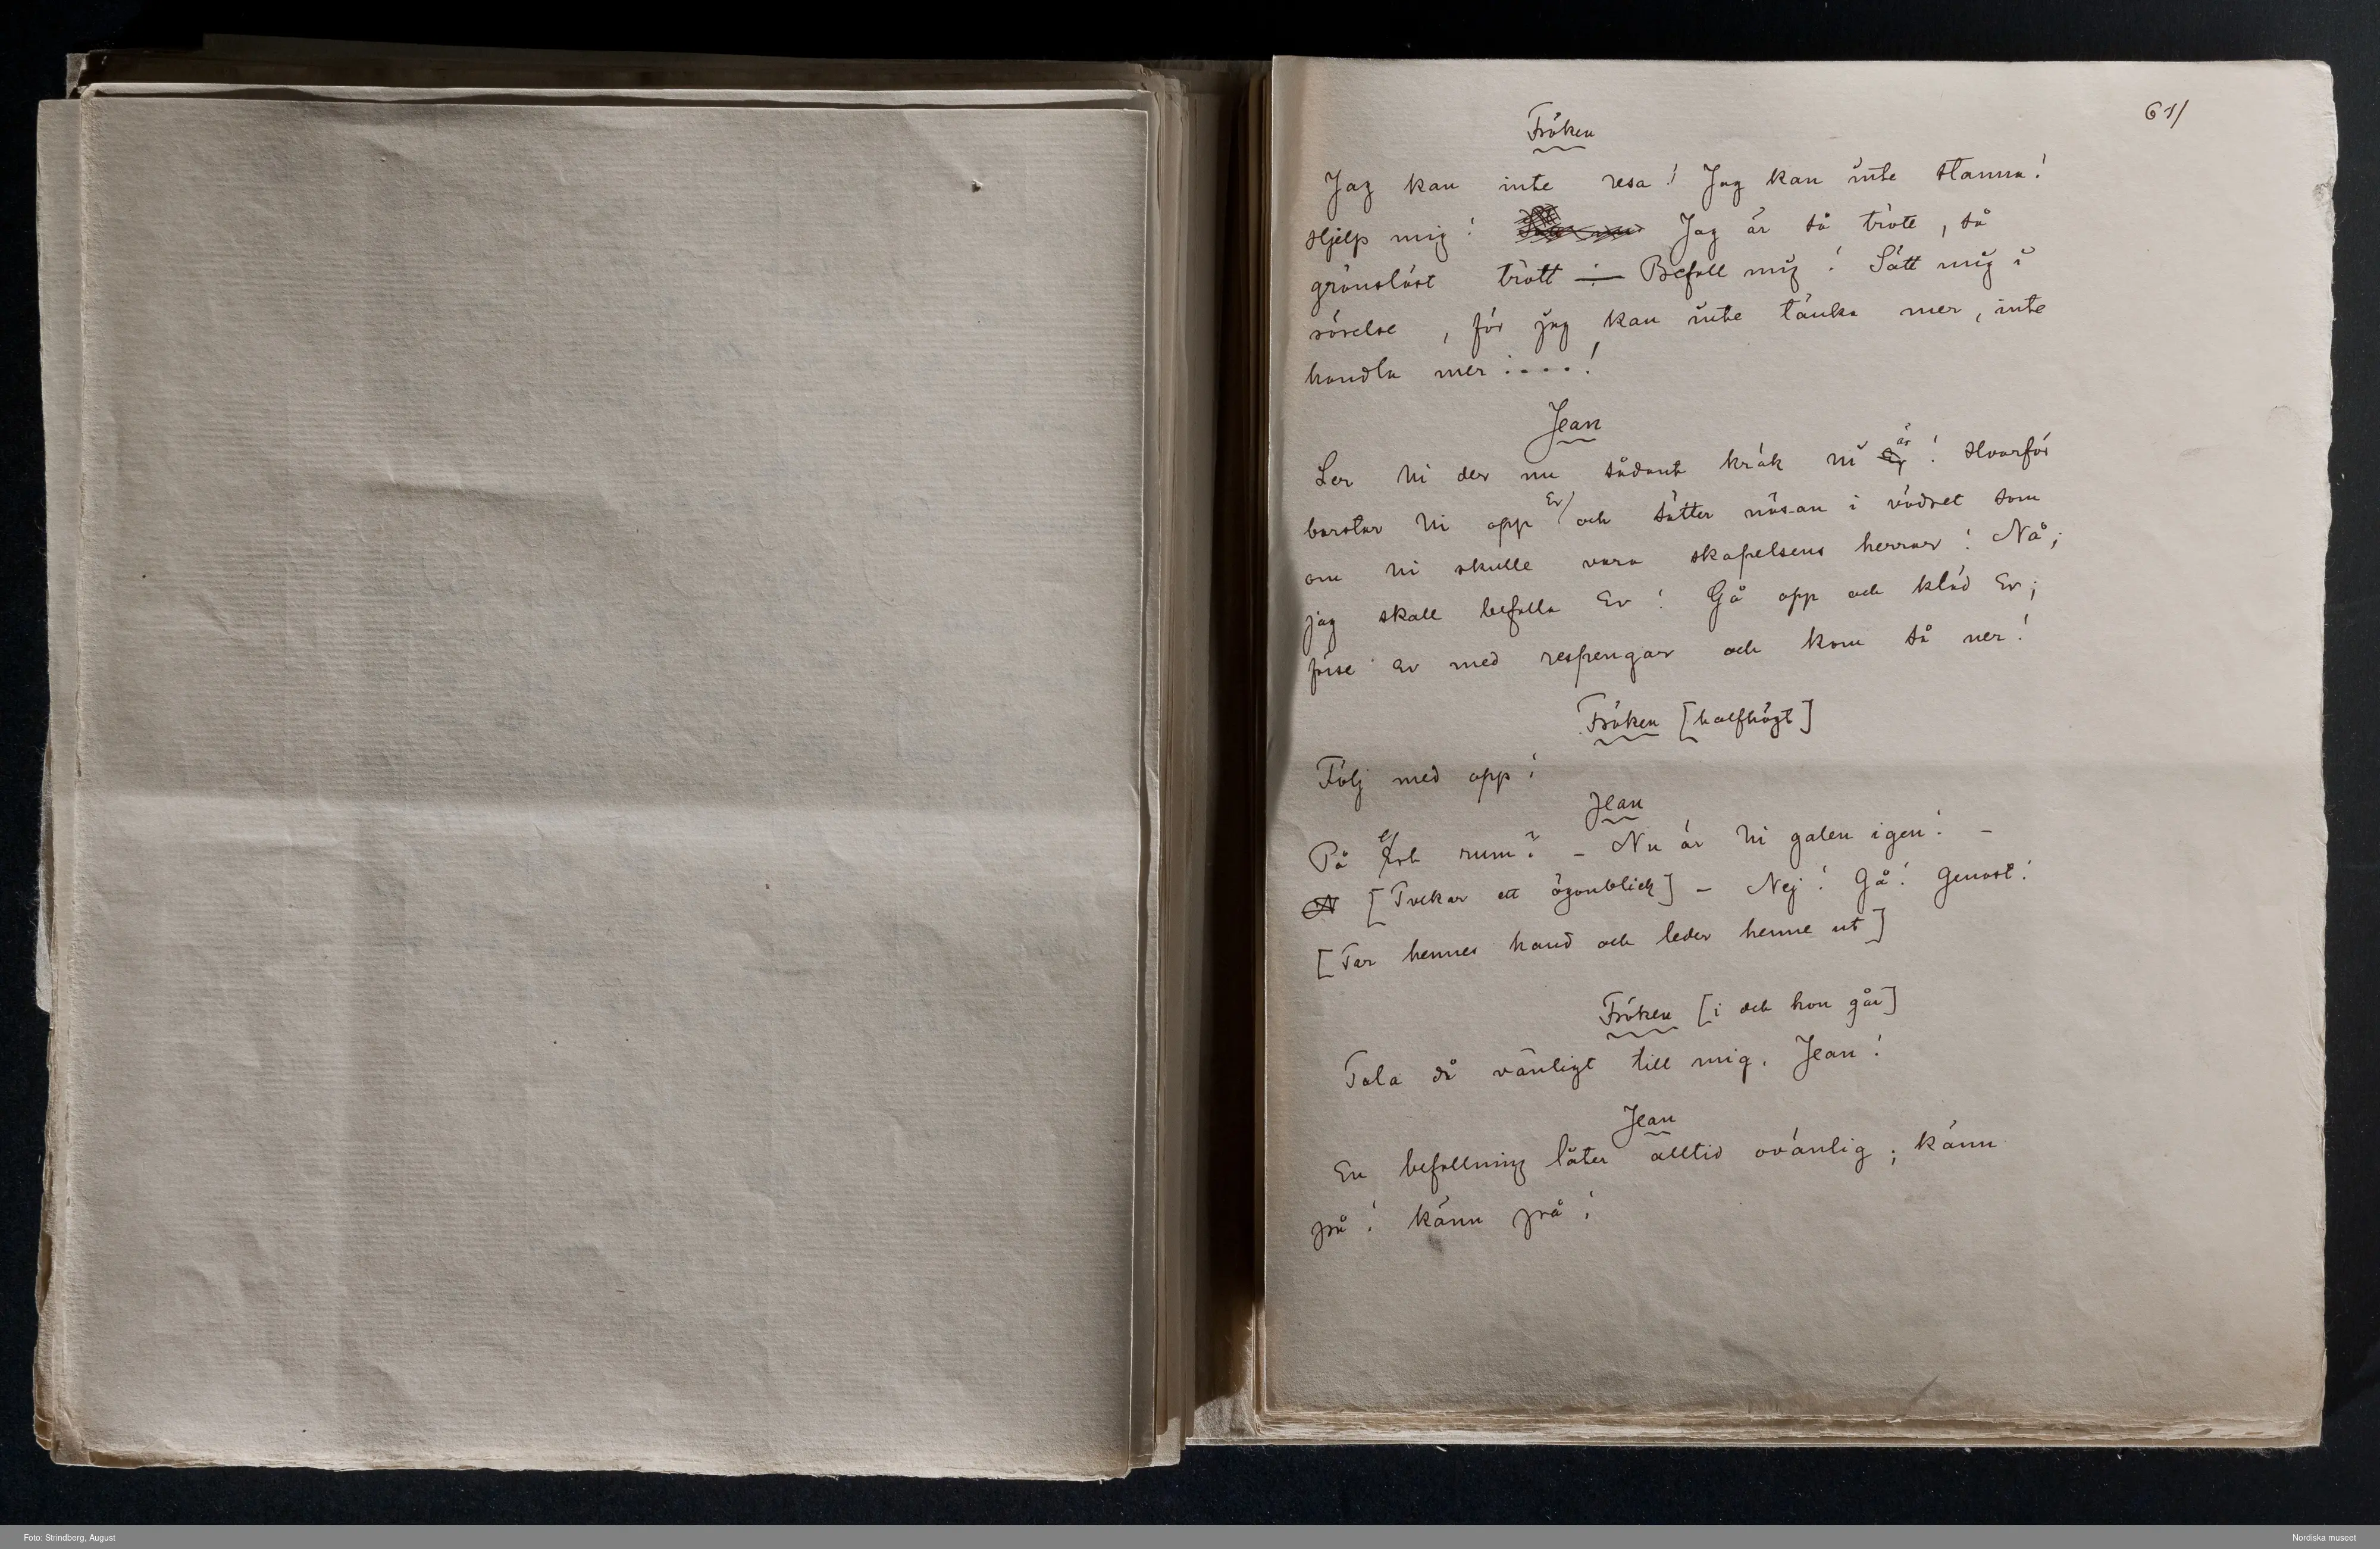 61/
Fröken
Jag kan inte resa! Jag kan inte stanna!
Hjelp mig! Jag är så trött, så
gränslöst trött — Befall mig! Sätt mig i
rörelse, för jag kan inte tänka mer, inte
handla mer ....!
Jean
Ser Ni der nu sådant kräk ni är! Hvarför
borstar Ni opp Er och sätter näsan i vädret som
om Ni skulle vara skapelsens herrar! Nå,
jag skall befalla Er! Gå opp och kläd Er;
förse Er med respengar och kom så ner!
Fröken [halfhögt]
Följ med opp!
Jean
På ert rum? – Nu är Ni galen igen! –
[Tvekar ett ögonblick] – Nej! Gå! Genast!
[Tar hennes hand och leder henne ut]
Fröken [i det hon går]
Tala då vänligt till mig, Jean!
Jean
En befallning låter alltid ovänlig; känn
på! känn på!
Foto: Strindberg, August
Nordiska museet